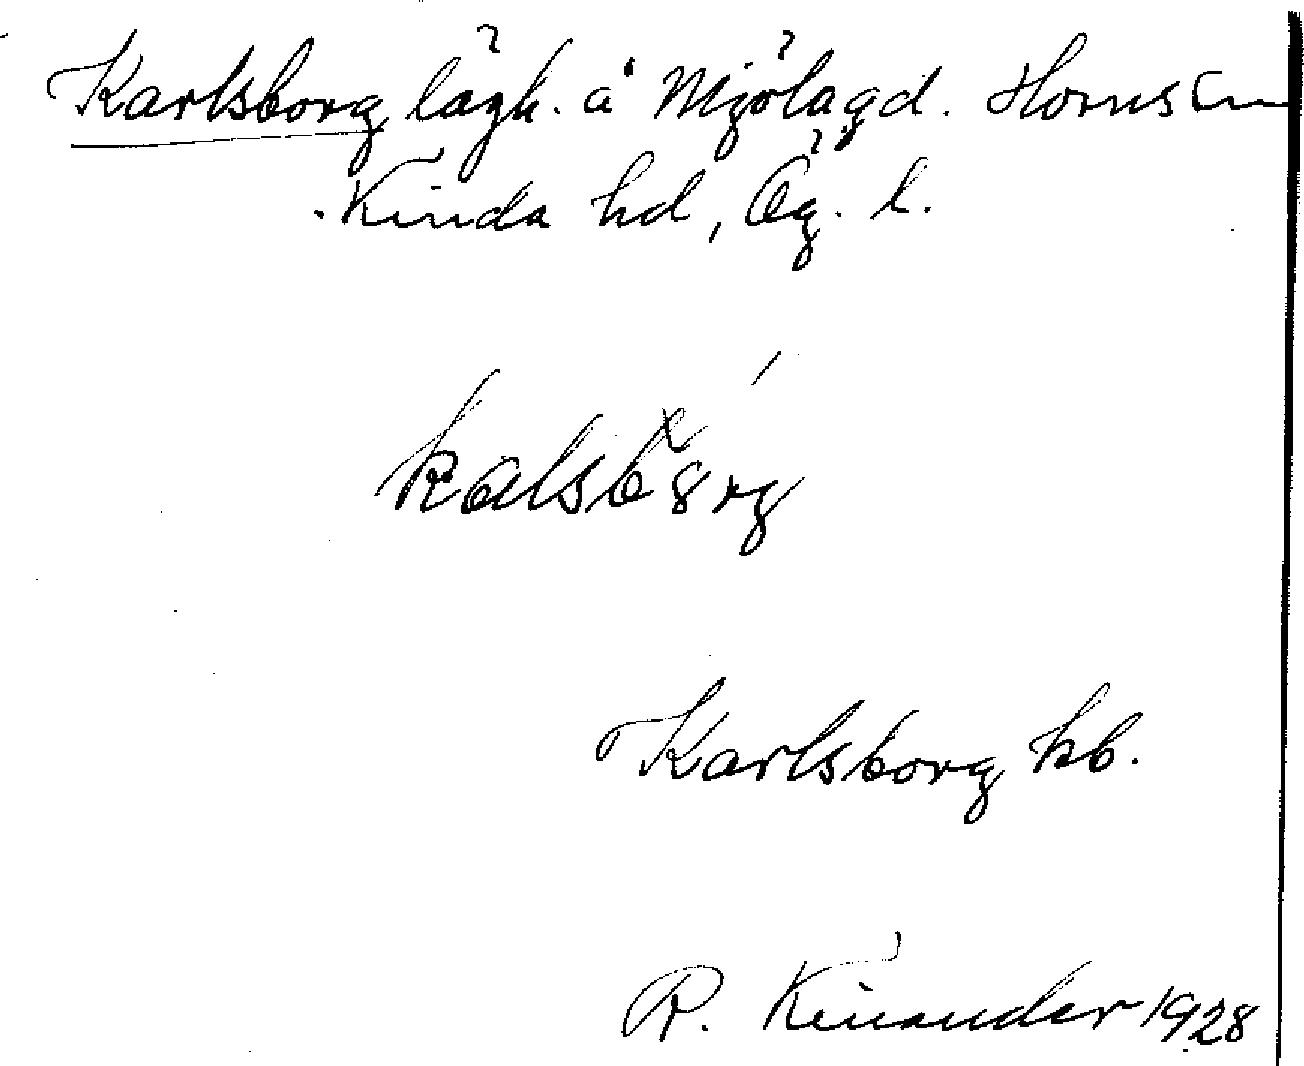 Karlsborg lägh. å Mjölagd. Horns sn
Kinda hd, Ög. l.
kalsbȣrg
Karlsborg kb.
R. Kinander 1928